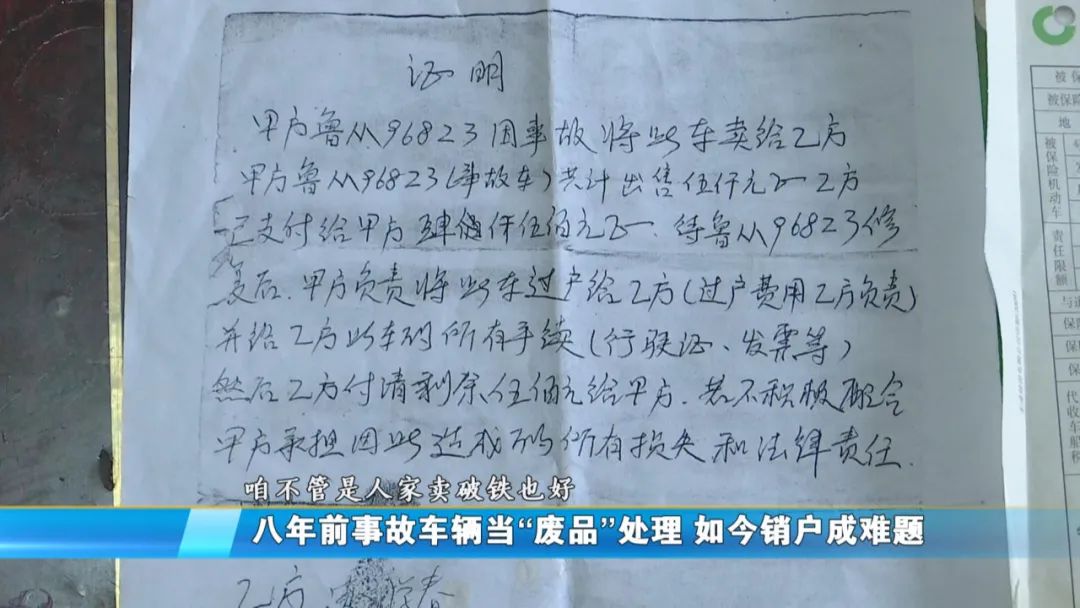 证明
甲方鲁从96823因事故将此车卖给乙方
甲方鲁从96823(事故车)共计出售伍仟元正乙方
已支付给甲方肆仟伍佰元正、待鲁从96823修
复后、甲方负责将此车过户给乙方(过户费用乙方负责)
并给乙方此车的所有手续(行驶证、发票等)
然后乙方付清剩余伍佰元给甲方.若不积极配合
甲方承担因此造成的所有损失和法律责任.
咱不管是人家卖破铁也好
八年前事故车辆当“废品”处理 如今销户成难题
乙方
春
被保
被保险
地
被保险机动车
责任限额
与道
保险
保
保
代收车船税